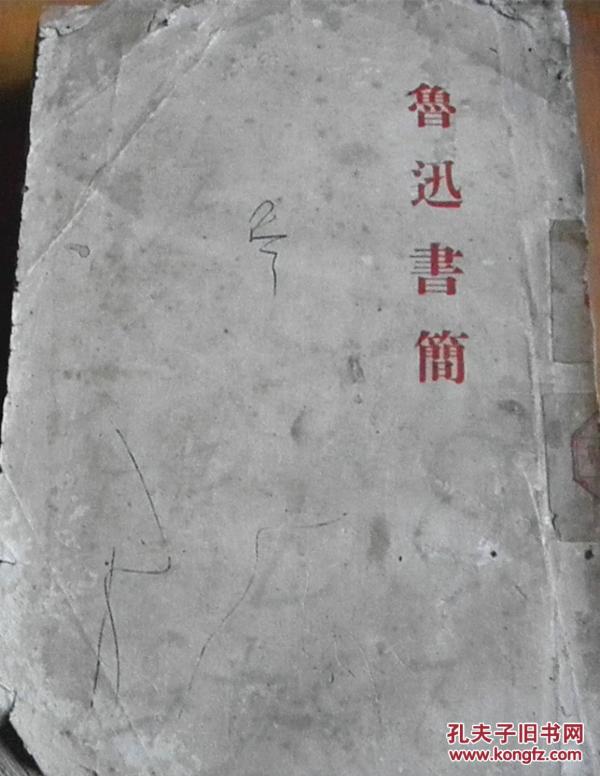 魯迅書簡
孔夫子旧书网
www.kongfz.com